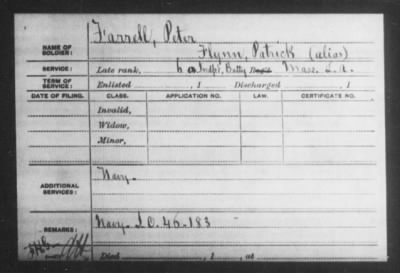 Farrell, Peter
NAME OF SOLDIER: Flynn, Patrick (alias)
SERVICE: Late rank, Indpt. Batty Mass. L. A.
TERM OF SERVICE: Enlisted , 1 Discharged , 1
DATE OF FILING. CLASS. APPLICATION NO. LAW. CERTIFICATE NO.
Invalid,
Widow,
Minor,
ADDITIONAL SERVICES: Navy.
REMARKS: Navy. I.C. 46.183
Died , 1 , at